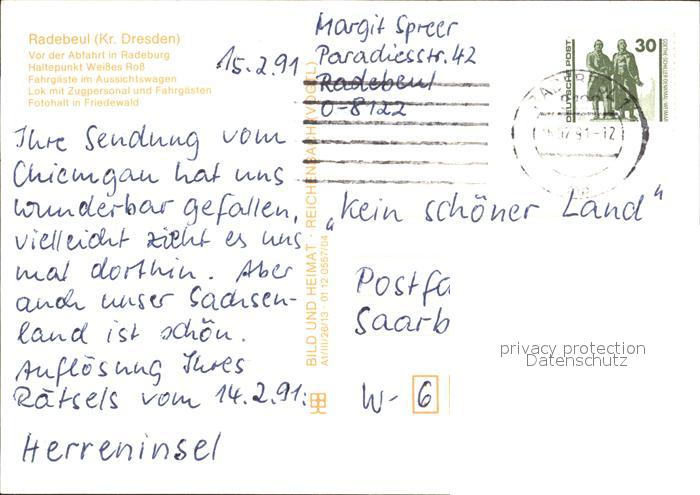 Radebeul (Kr. Dresden)
Vor der Abfahrt in Radeburg
Haltepunkt Weißes Roß
Fahrgäste im Aussichtswagen
Lok mit Zugpersonal und Fahrgästen
Fotohalt in Friedewald
15.2.91
Ihre Sendung vom
Chiemgau hat uns
wunderbar gefallen,
vielleicht zieht es uns
mal dorthin. Aber
auch unser Sachsen-
land ist schön.
Auflösung Ihres
Rätsels vom 14.2.91:
Herreninsel
BILD UND HEIMAT · REICHENBACH (VOGTL)
A1/III/26/13 · 01 12 0557/04
Margit Spreer
Paradiesstr. 42
Radebeul
O-8122
DEUTSCHE POST
30
GOETHE-SCHILLER-DENKMAL WEIMAR
91-12
„Kein schöner Land"
Postfa
Saarb
W- 6
privacy protection
Datenschutz